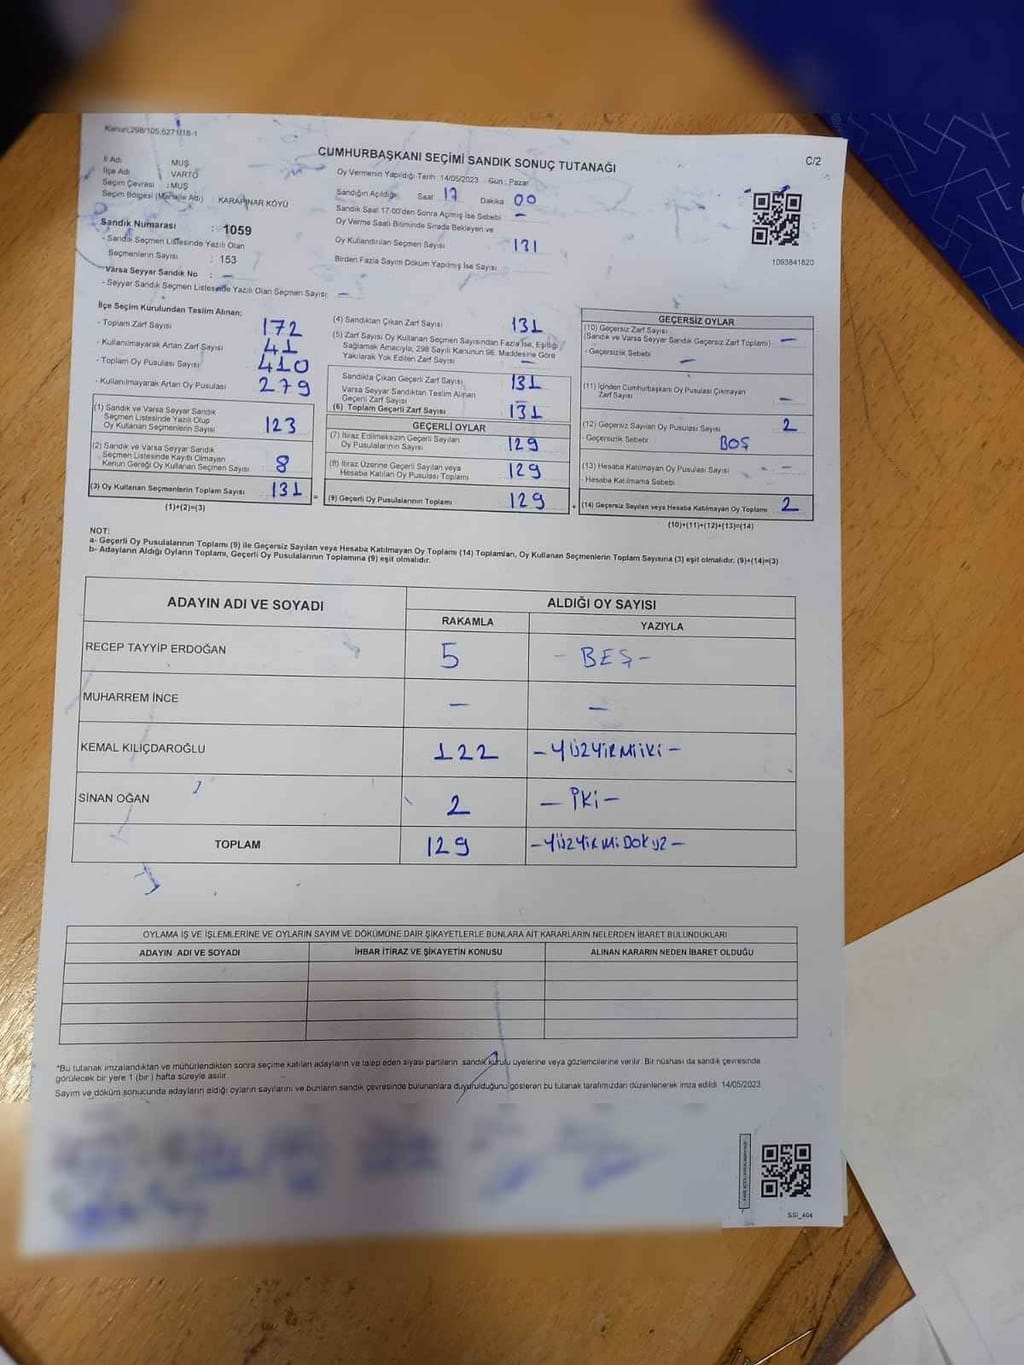 Kanun;298/105;6271/18-1
CUMHURBAŞKANI SEÇİMİ SANDIK SONUÇ TUTANAĞI
C/2
İl Adı MUŞ
İlçe Adı VARTO
Seçim Çevresi :MUŞ
Seçim Bölgesi (Mahalle Adı) KARAPINAR KÖYÜ
Sandık Numarası : 1059
- Sandık Seçmen Listesinde Yazılı Olan
Seçmenlerin Sayısı : 153
Varsa Seyyar Sandık No : -
- Seyyar Sandık Seçmen Listesinde Yazılı Olan Seçmen Sayısı -
Oy Vermenin Yapıldığı Tarih :14/05/2023 Gün : Pazar
Sandığın Açıldığı Saat 17 Dakika 00
Sandık Saat 17:00'den Sonra Açılmış İse Sebebi -
Oy Verme Saati Bitiminde Sırada Bekleyen ve
Oy Kullandırılan Seçmen Sayısı 131
Birden Fazla Sayım Döküm Yapılmış İse Sayısı
1093841820
İlçe Seçim Kurulundan Teslim Alınan;
- Toplam Zarf Sayısı 172
- Kullanılmayarak Artan Zarf Sayısı 41
- Toplam Oy Pusulası Sayısı 410
- Kullanılmayarak Artan Oy Pusulası 279
(1) Sandık ve Varsa Seyyar Sandık
Seçmen Listesinde Yazılı Olup
Oy Kullanan Seçmenlerin Sayısı 123
(2) Sandık ve Varsa Seyyar Sandık
Seçmen Listesinde Kayıtlı Olmayan
Kanun Gereği Oy Kullanan Seçmen Sayısı 8
(3) Oy Kullanan Seçmenlerin Toplam Sayısı 131
(1)+(2)=(3)
(4) Sandıktan Çıkan Zarf Sayısı 131
(5) Zarf Sayısı Oy Kullanan Seçmen Sayısından Fazla İse, Eşitliği
Sağlamak Amacıyla, 298 Sayılı Kanunun 98. Maddesine Göre
Yakılarak Yok Edilen Zarf Sayısı -
Sandıkta Çıkan Geçerli Zarf Sayısı 131
Varsa Seyyar Sandıktan Teslim Alınan
Geçerli Zarf Sayısı
(6) Toplam Geçerli Zarf Sayısı 131
GEÇERLİ OYLAR
(7) İtiraz Edilmeksizin Geçerli Sayılan
Oy Pusulalarının Sayısı 129
(8) İtiraz Üzerine Geçerli Sayılan veya
Hesaba Katılan Oy Pusulası Toplamı 129
= (9) Geçerli Oy Pusulalarının Toplamı 129
GEÇERSİZ OYLAR
(10) Geçersiz Zarf Sayısı
(Sandık ve Varsa Seyyar Sandık Geçersiz Zarf Toplamı) -
- Geçersizlik Sebebi -
(11) İçinden Cumhurbaşkanı Oy Pusulası Çıkmayan
Zarf Sayısı -
(12) Geçersiz Sayılan Oy Pusulası Sayısı 2
- Geçersizlik Sebebi BOŞ
(13) Hesaba Katılmayan Oy Pusulası Sayısı -
- Hesaba Katılmama Sebebi
+ (14) Geçersiz Sayılan veya Hesaba Katılmayan Oy Toplamı 2
(10)+(11)+(12)+(13)=(14)
NOT:
a- Geçerli Oy Pusulalarının Toplamı (9) ile Geçersiz Sayılan veya Hesaba Katılmayan Oy Toplamı (14) Toplamları, Oy Kullanan Seçmenlerin Toplam Sayısına (3) eşit olmalıdır. (9)+(14)=(3)
b- Adayların Aldığı Oyların Toplamı, Geçerli Oy Pusulalarının Toplamına (9) eşit olmalıdır.
ADAYIN ADI VE SOYADI ALDIĞI OY SAYISI
RAKAMLA YAZIYLA
RECEP TAYYİP ERDOĞAN 5 - BEŞ -
MUHARREM İNCE - -
KEMAL KILIÇDAROĞLU 122 - YÜZYİRMİİKİ -
SİNAN OĞAN 2 - İKİ -
TOPLAM 129 - YÜZYİRMİDOKUZ -
OYLAMA İŞ VE İŞLEMLERİNE VE OYLARIN SAYIM VE DÖKÜMÜNE DAİR ŞİKAYETLERLE BUNLARA AİT KARARLARIN NELERDEN İBARET BULUNDUKLARI
ADAYIN ADI VE SOYADI İHBAR İTİRAZ VE ŞİKAYETİN KONUSU ALINAN KARARIN NEDEN İBARET OLDUĞU
*Bu tutanak imzalandıktan ve mühürlendikten sonra seçime katılan adayların ve talep eden siyasi partilerin sandık kurulu üyelerine veya gözlemcilerine verilir. Bir nüshası da sandık çevresinde
görülecek bir yere 1 (bir ) hafta süreyle asılır.
Sayım ve döküm sonucunda adayların aldığı oyların sayılarını ve bunların sandık çevresinde bulunanlara duyurulduğunu gösteren bu tutanak tarafımızdan düzenlenerek imza edildi 14/05/2023
SSI_404